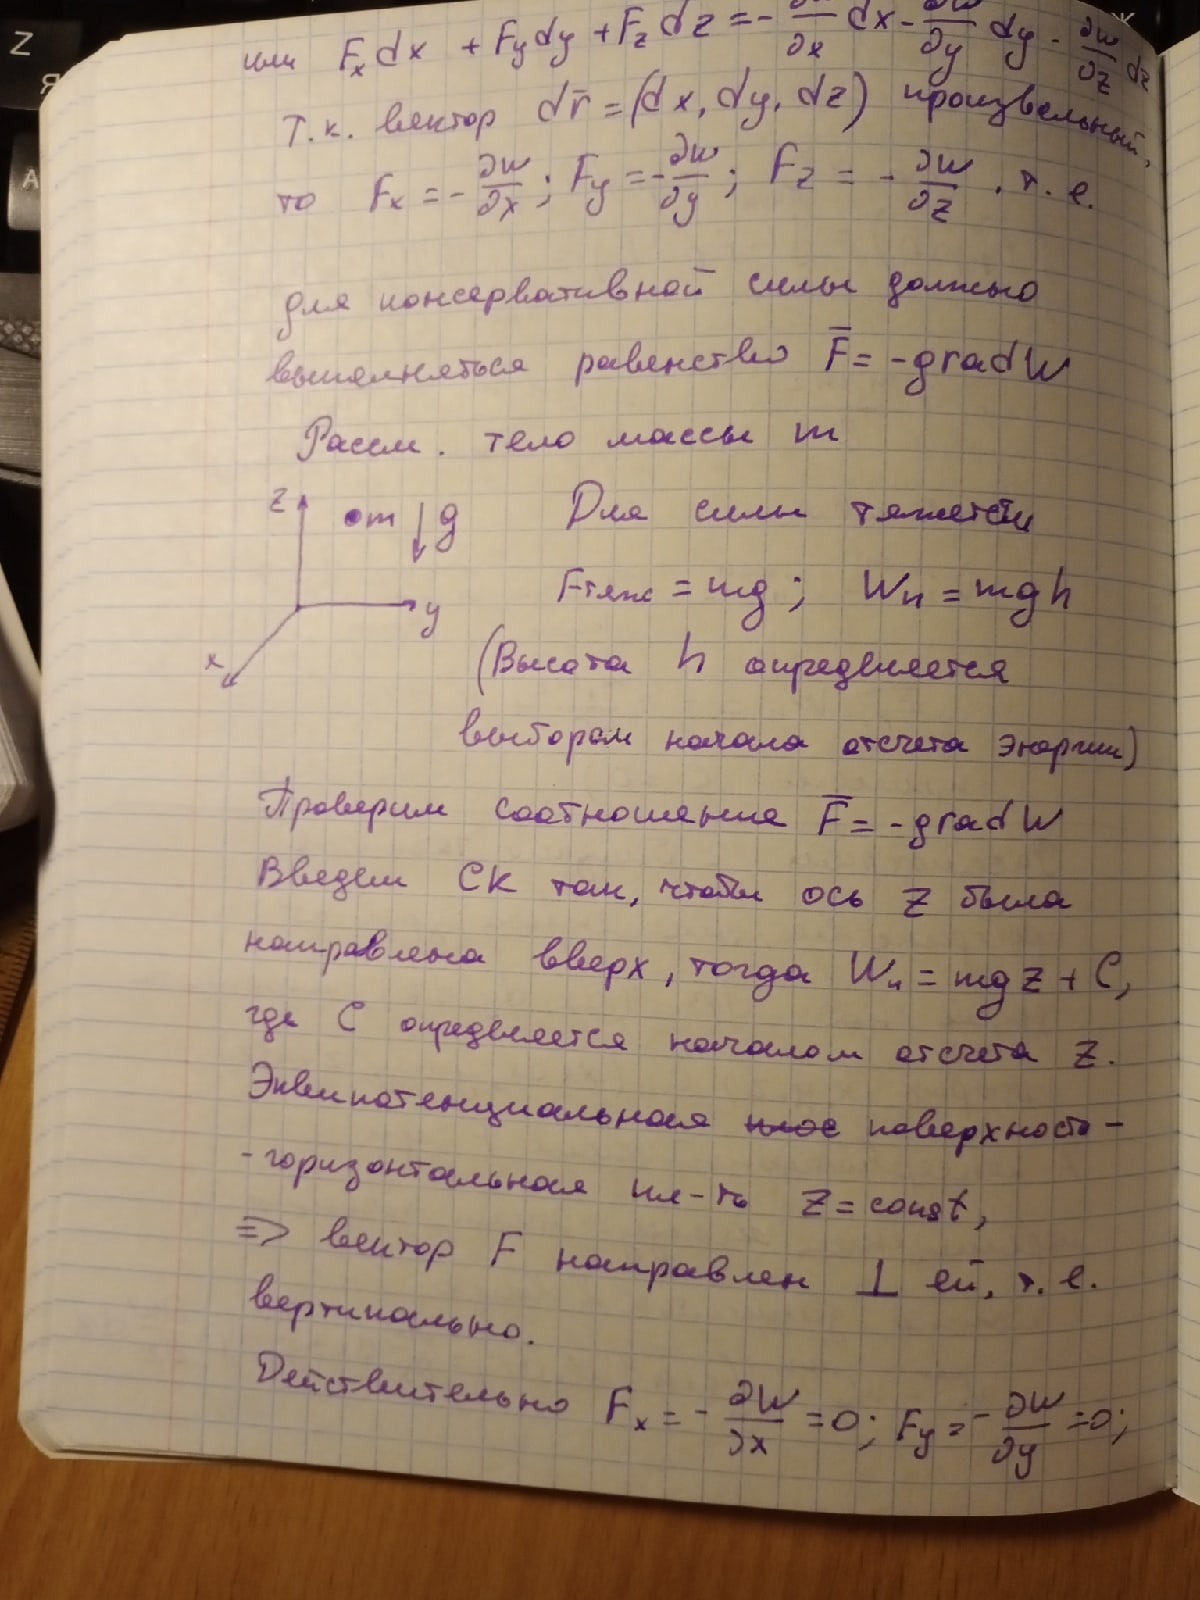 Z
Я
A
Ж
или Fₓdx + F_y dy + F_z dz = - ∂W/∂x dx - ∂W/∂y dy - ∂W/∂z dz
Т.к. вектор dr̄ = (dx, dy, dz) произвольный,
то Fₓ = - ∂W/∂x ; F_y = - ∂W/∂y ; F_z = - ∂W/∂z , т. е.
для консервативной силы должно
выполняться равенство F̄ = -grad W
Рассм. тело массы m
z
m g
y
x
Для силы тяжести
Fтяж = mg ; Wп = mgh
(Высота h определяется
выбором начала отсчета энергии)
Проверим соотношение F̄ = -grad W
Введем СК так, чтобы ось Z была
направлена вверх, тогда Wп = mgz + C,
где C определяется началом отсчета z.
Эквипотенциальная плос поверхность -
- горизонтальная пл-ть Z = const,
=> вектор F направлен ⊥ ей, т. е.
вертикально.
Действительно Fₓ = - ∂W/∂x = 0; F_y = - ∂W/∂y = 0;